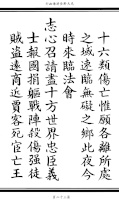 十六類傷亡惟願各離所處
之城遠臨無礙之鄉此夜今
時來臨法會
志心召請盡十方世界忠臣義
士報國捐軀戰陣殺傷強徒
賊盜遠商近賈客死宦亡王